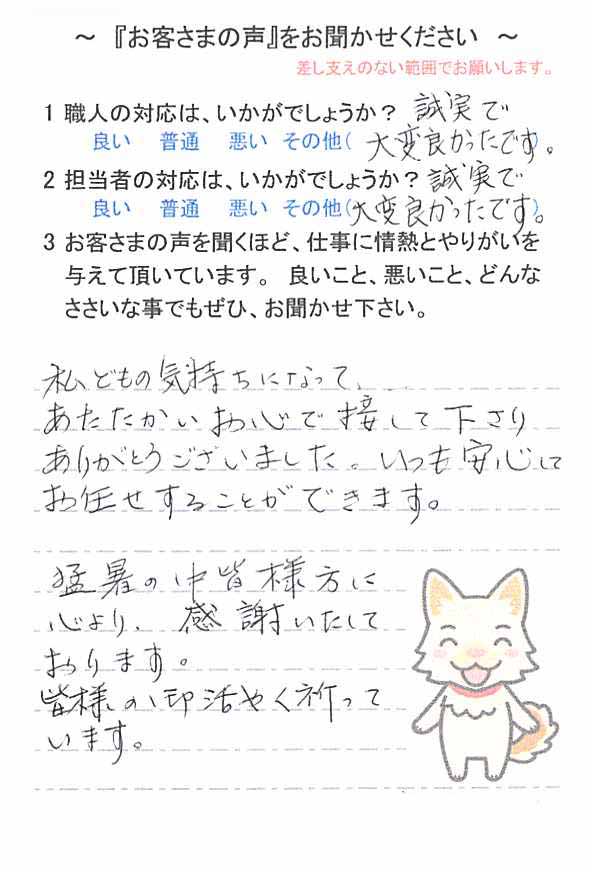 ～ 『お客さまの声』をお聞かせください ～
差し支えのない範囲でお願いします。
1 職人の対応は、いかがでしょうか？ 誠実で
良い 普通 悪い その他( 大変良かったです。)
2 担当者の対応は、いかがでしょうか？ 誠実で
良い 普通 悪い その他(大変良かったです。)
3 お客さまの声を聞くほど、仕事に情熱とやりがいを
与えて頂いています。 良いこと、悪いこと、どんな
ささいな事でもぜひ、お聞かせ下さい。
私どもの気持ちになって、
あたたかいお心で接して下さり
ありがとうございました。いつも安心して
お任せすることができます。
猛暑の中皆様方に
心より、感謝いたして
おります。
皆様の御活やく祈って
います。